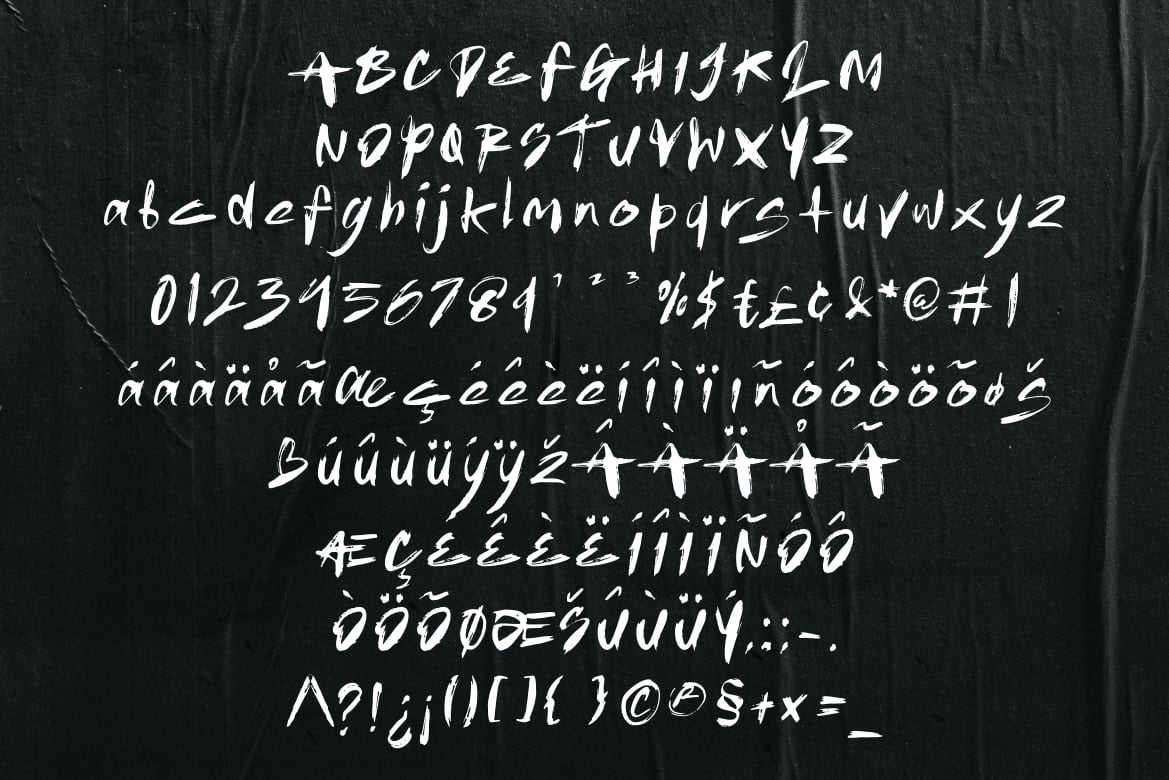 ABCDEFGHIJKLM
NOPQRSTUVWXYZ
abcdefghijklmnopqrstuvwxyz
0123456789¹²³%$€£¢&*@#|
áâàäåãæçéêèëíîìïıñóôòöõøš
ßúûùüýÿžÂÀÄÅÃ
ÆÇÉÊÈËÍÎÌÏÑÓÔ
ÒÖÕØŠÛÙÜÝ,:;-.
^?!¿¡()[]{}©®§+×=_